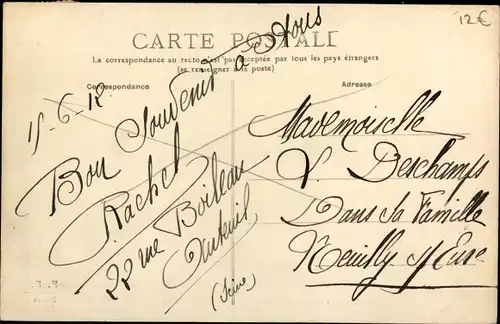 12€
CARTE POSTALE
La correspondance au recto n'est pas acceptée par tous les pays étrangers
(se renseigner à la poste)
Correspondance
Adresse
15-6-12
Bon Souvenir à Tous
Rachel
22 rue Boileau
Auteuil
(Seine)
Mademoiselle
V. Deschamps
Dans sa Famille
Neuilly s/ Eure